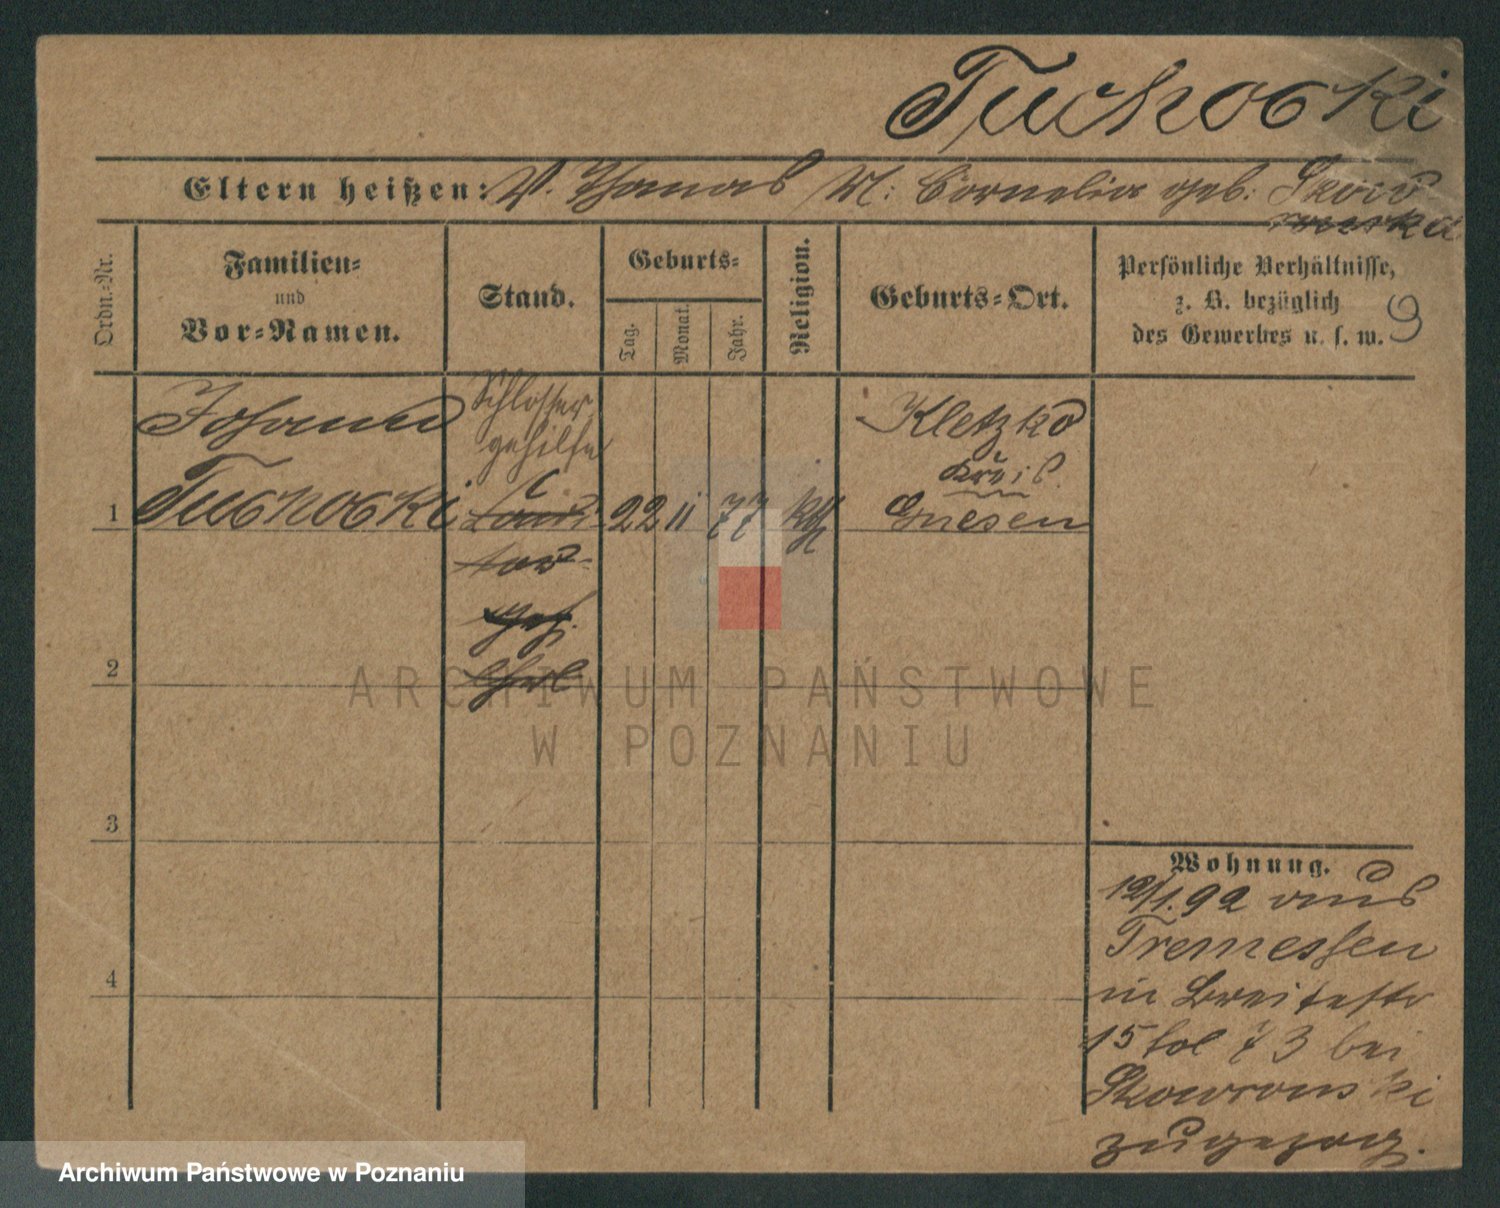 Tuchocki
Eltern heißen: V. Thomas M: Cornelia geb. Skow
ronska
Ordn.-Nr.
Familien-
und
Vor-Namen.
Stand.
Geburts-
Tag.
Monat.
Jahr.
Religion.
Geburts-Ort.
Persönliche Verhältnisse,
z. B. bezüglich
des Gewerbes u. s. w. 9
Johann
Tuchocki
Schlosser
gehilfe
1
22 11 77 kth
Kletzko
Kreis
Gnesen
2
3
4
Wohnung.
12/1.92 aus
Tremessen
in Breitestr
15 bei
Skowronski
zugezog.
ARCHIWUM PAŃSTWOWE
W POZNANIU
Archiwum Państwowe w Poznaniu